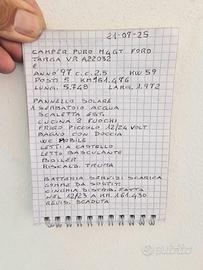 21-07-25
CAMPER PURO M4GT FORD
TARGA VR A22032
E
ANNO '97 C.C. 2.5 KW 59
POSTI 5 KM 161.476
LUNG. 5,748 LARG. 1,972
PANNELLO SOLARE
1 SERBATOIO ACQUA
SCALETTA EST.
CUCINA 2 FUOCHI
FRIGO PICCOLO 12/24 VOLT
BAGNO CON DOCCIA
WC MOBILE
LETTI A CASTELLO
LETTO BASCULANTE
BOILER
RISCALD. TRUMA
BATTERIA SERVIZI SCARICA
GOMME DA SOSTIT.
CINGHIA DISTRIB. FATTA
NEL 12/23 A KM. 161.430
REVIS. SCADUTA
subito